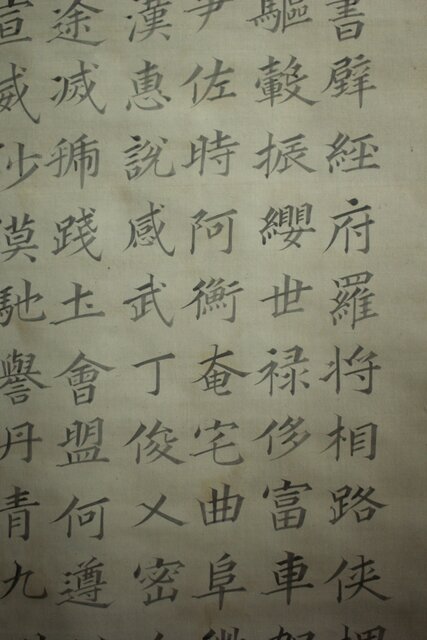 書壁經府羅將相路俠
驅轂振纓世禄侈富車
尹佐時阿衡奄宅曲阜微
漢惠說感武丁俊乂密
途滅虢踐圡會盟何遵
宣威沙漠馳譽丹青九